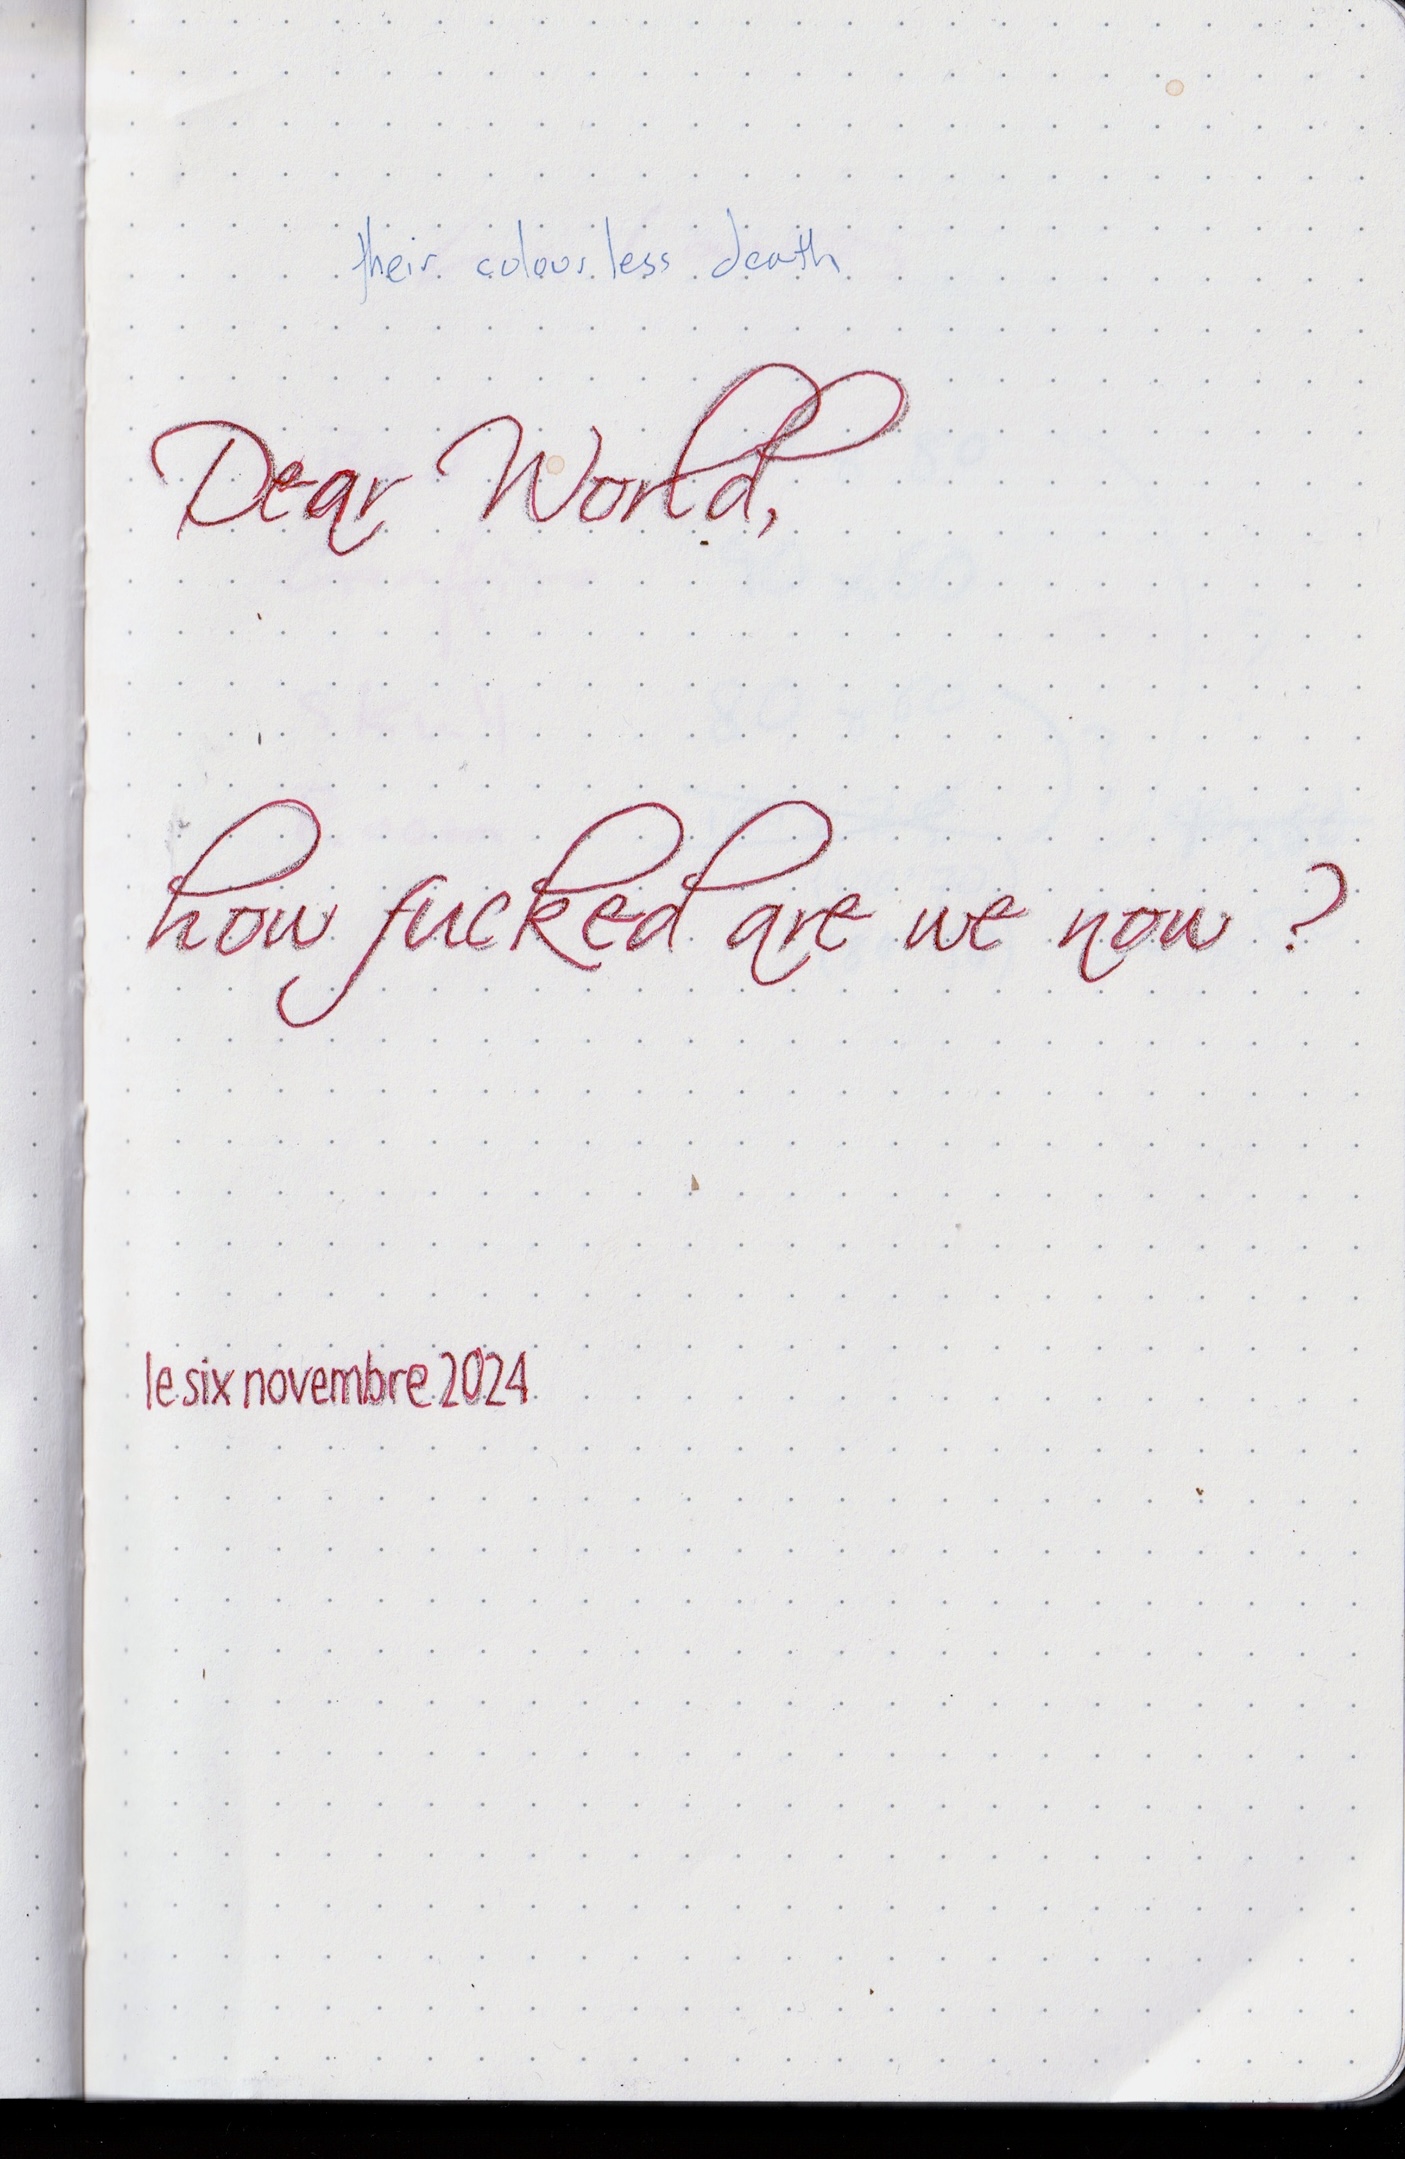 their colourless death
Dear World,
how fucked are we now ?
le six novembre 2024